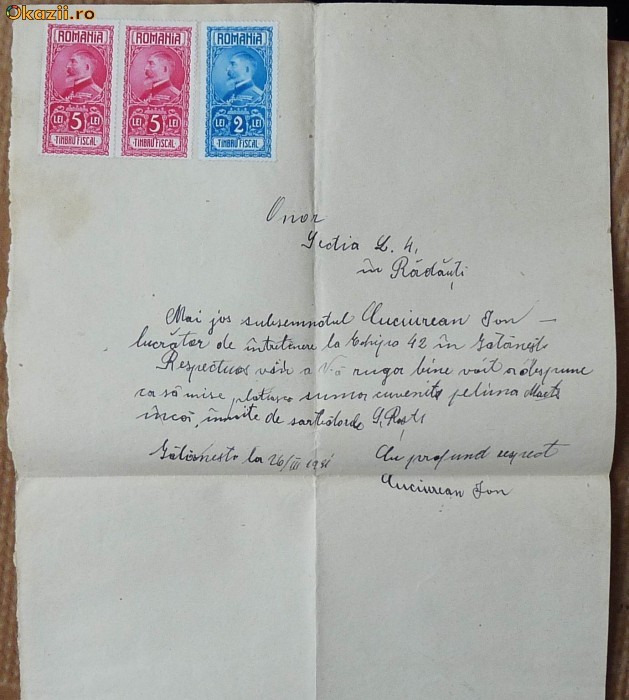 Okazii.ro
ROMANIA ROMANIA ROMANIA
LEI 5 LEI LEI 5 LEI LEI 2 LEI
TIMBRU FISCAL TIMBRU FISCAL TIMBRU FISCAL
Onor
Secția L. 4,
în Rădăuți
Mai jos subsemnatul Cuciurean Ion —
lucrător de întreținere la Echipa 42 în Gălănești
Respectuos vin a Vă ruga bine voiți a despune
ca să mise plătească suma cuvenită pe luna Marte
încă, înainte de sărbătorile S. Paști
Gălănești la 26/III 19
Cu profund respect
Cuciurean Ion